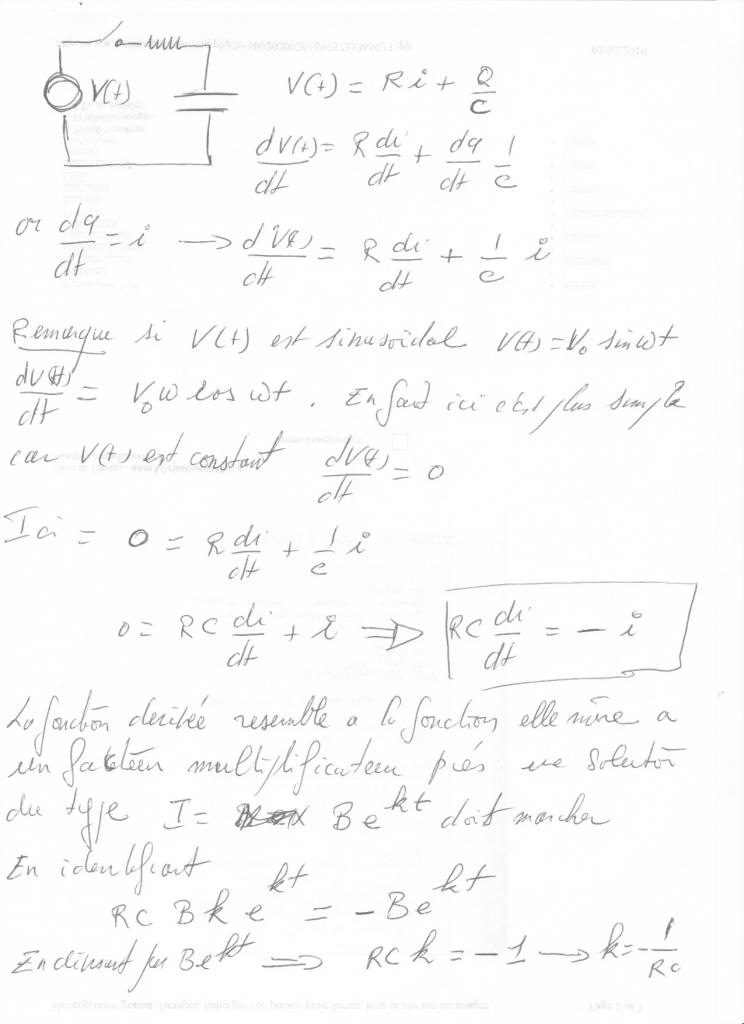 V(t)
V(t) = Ri + Q/C
dV(t)/dt = R di/dt + dq/dt 1/C
or dq/dt = i → dV(t)/dt = R di/dt + 1/C i
Remarque si V(t) est sinusoïdal V(t) = V₀ sin ωt
dV(t)/dt = V₀ ω cos ωt. En fait ici c'est plus simple
car V(t) est constant dV(t)/dt = 0
Ici = 0 = R di/dt + 1/C i
0 = RC di/dt + i ⇒ RC di/dt = - i
La fonction derivée resemble a la fonction elle même a
un facteur multiplificateur près une solution
du type I = B e^kt doit marcher
En identifiant
RC B k e^kt = - B e^kt
En divisant par B e^kt ⇒ RC k = - 1 → k = - 1/RC